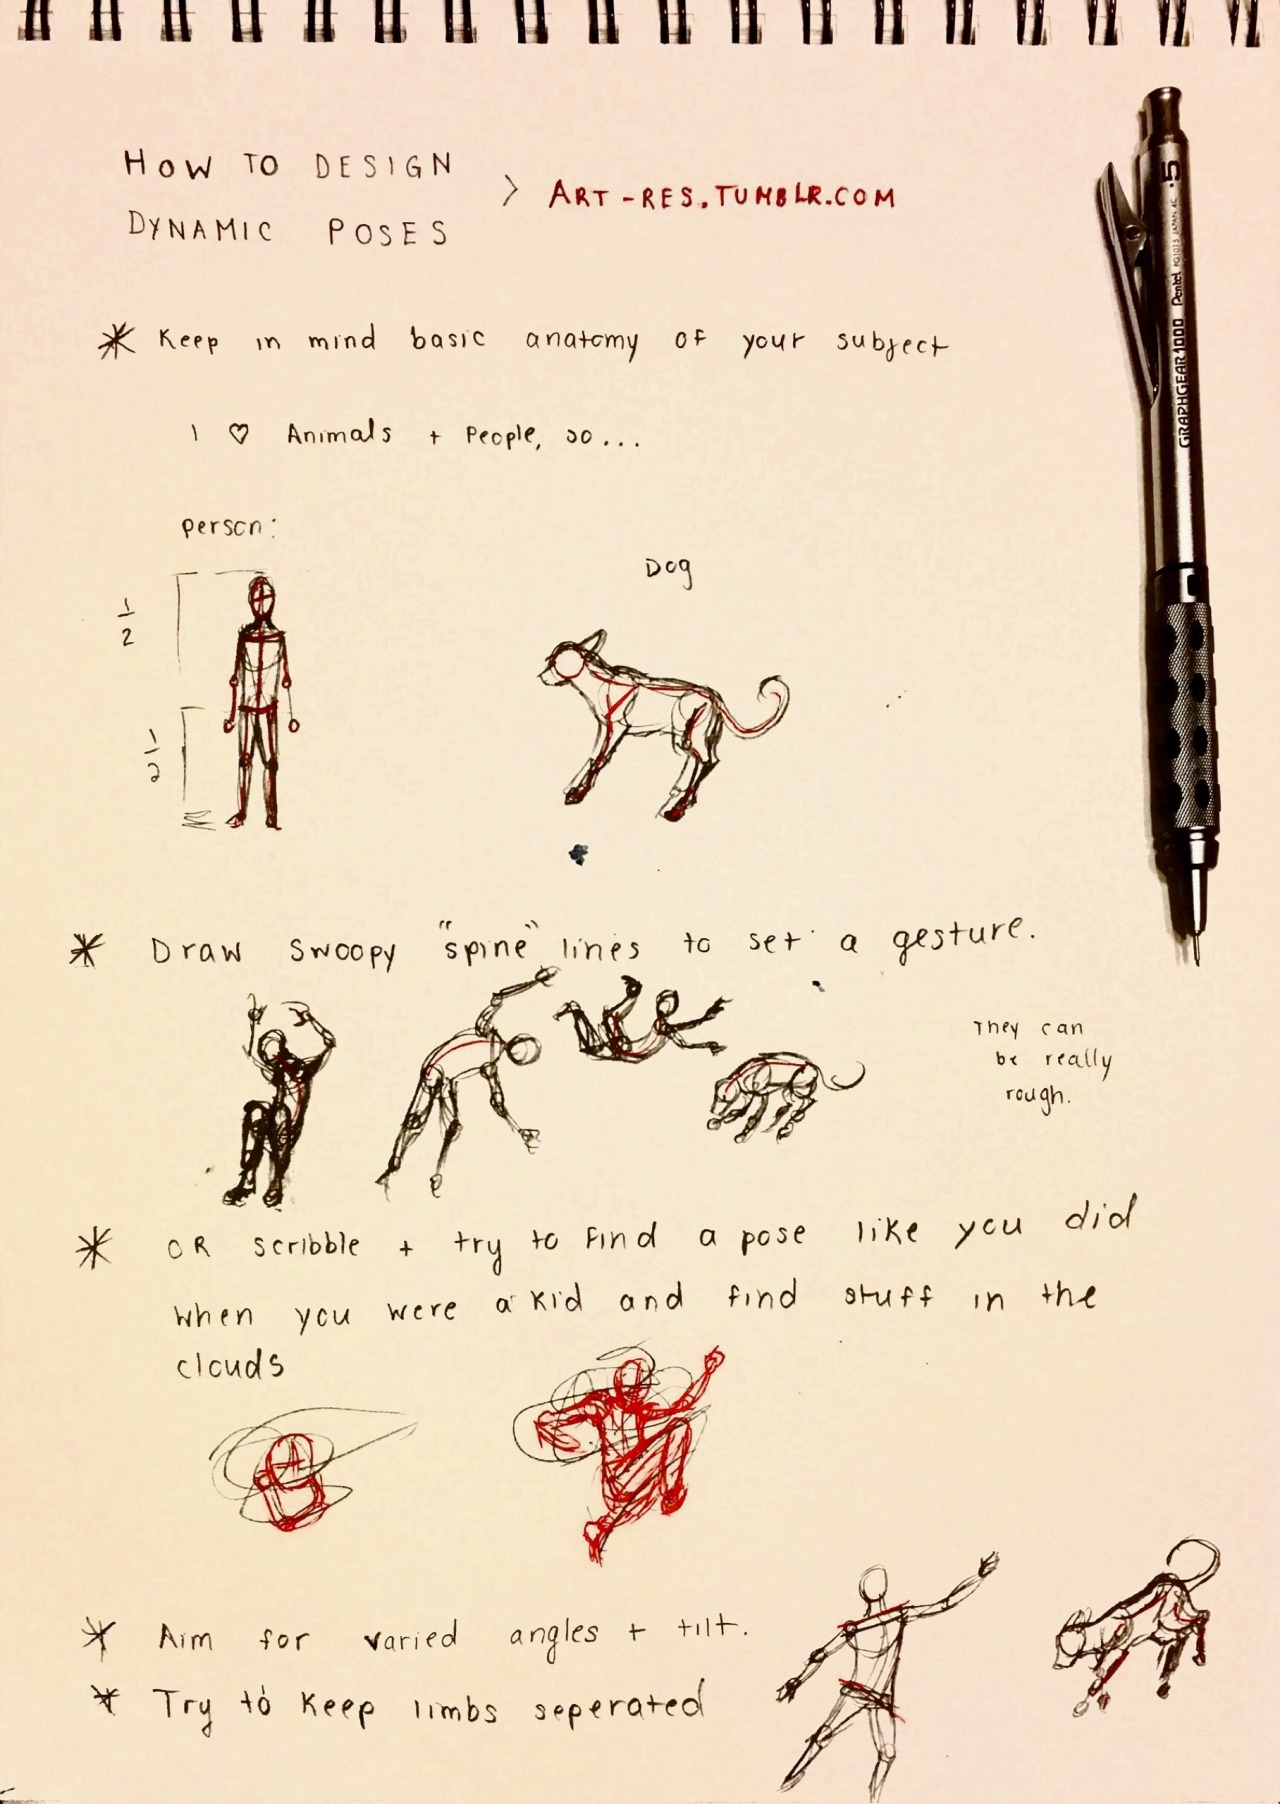 HOW TO DESIGN
DYNAMIC POSES
> ART-RES.TUMBLR.COM
* Keep in mind basic anatomy of your subject
I ♡ Animals + People, so...
person:
Dog
1/2
1/2
* Draw swoopy "spine" lines to set a gesture.
They can
be really
rough.
* OR scribble + try to find a pose like you did
when you were a kid and find stuff in the
clouds
* Aim for varied angles + tilt.
* Try to keep limbs seperated
.5
GRAPHGEAR 1000 Pentel PG1015 JAPAN